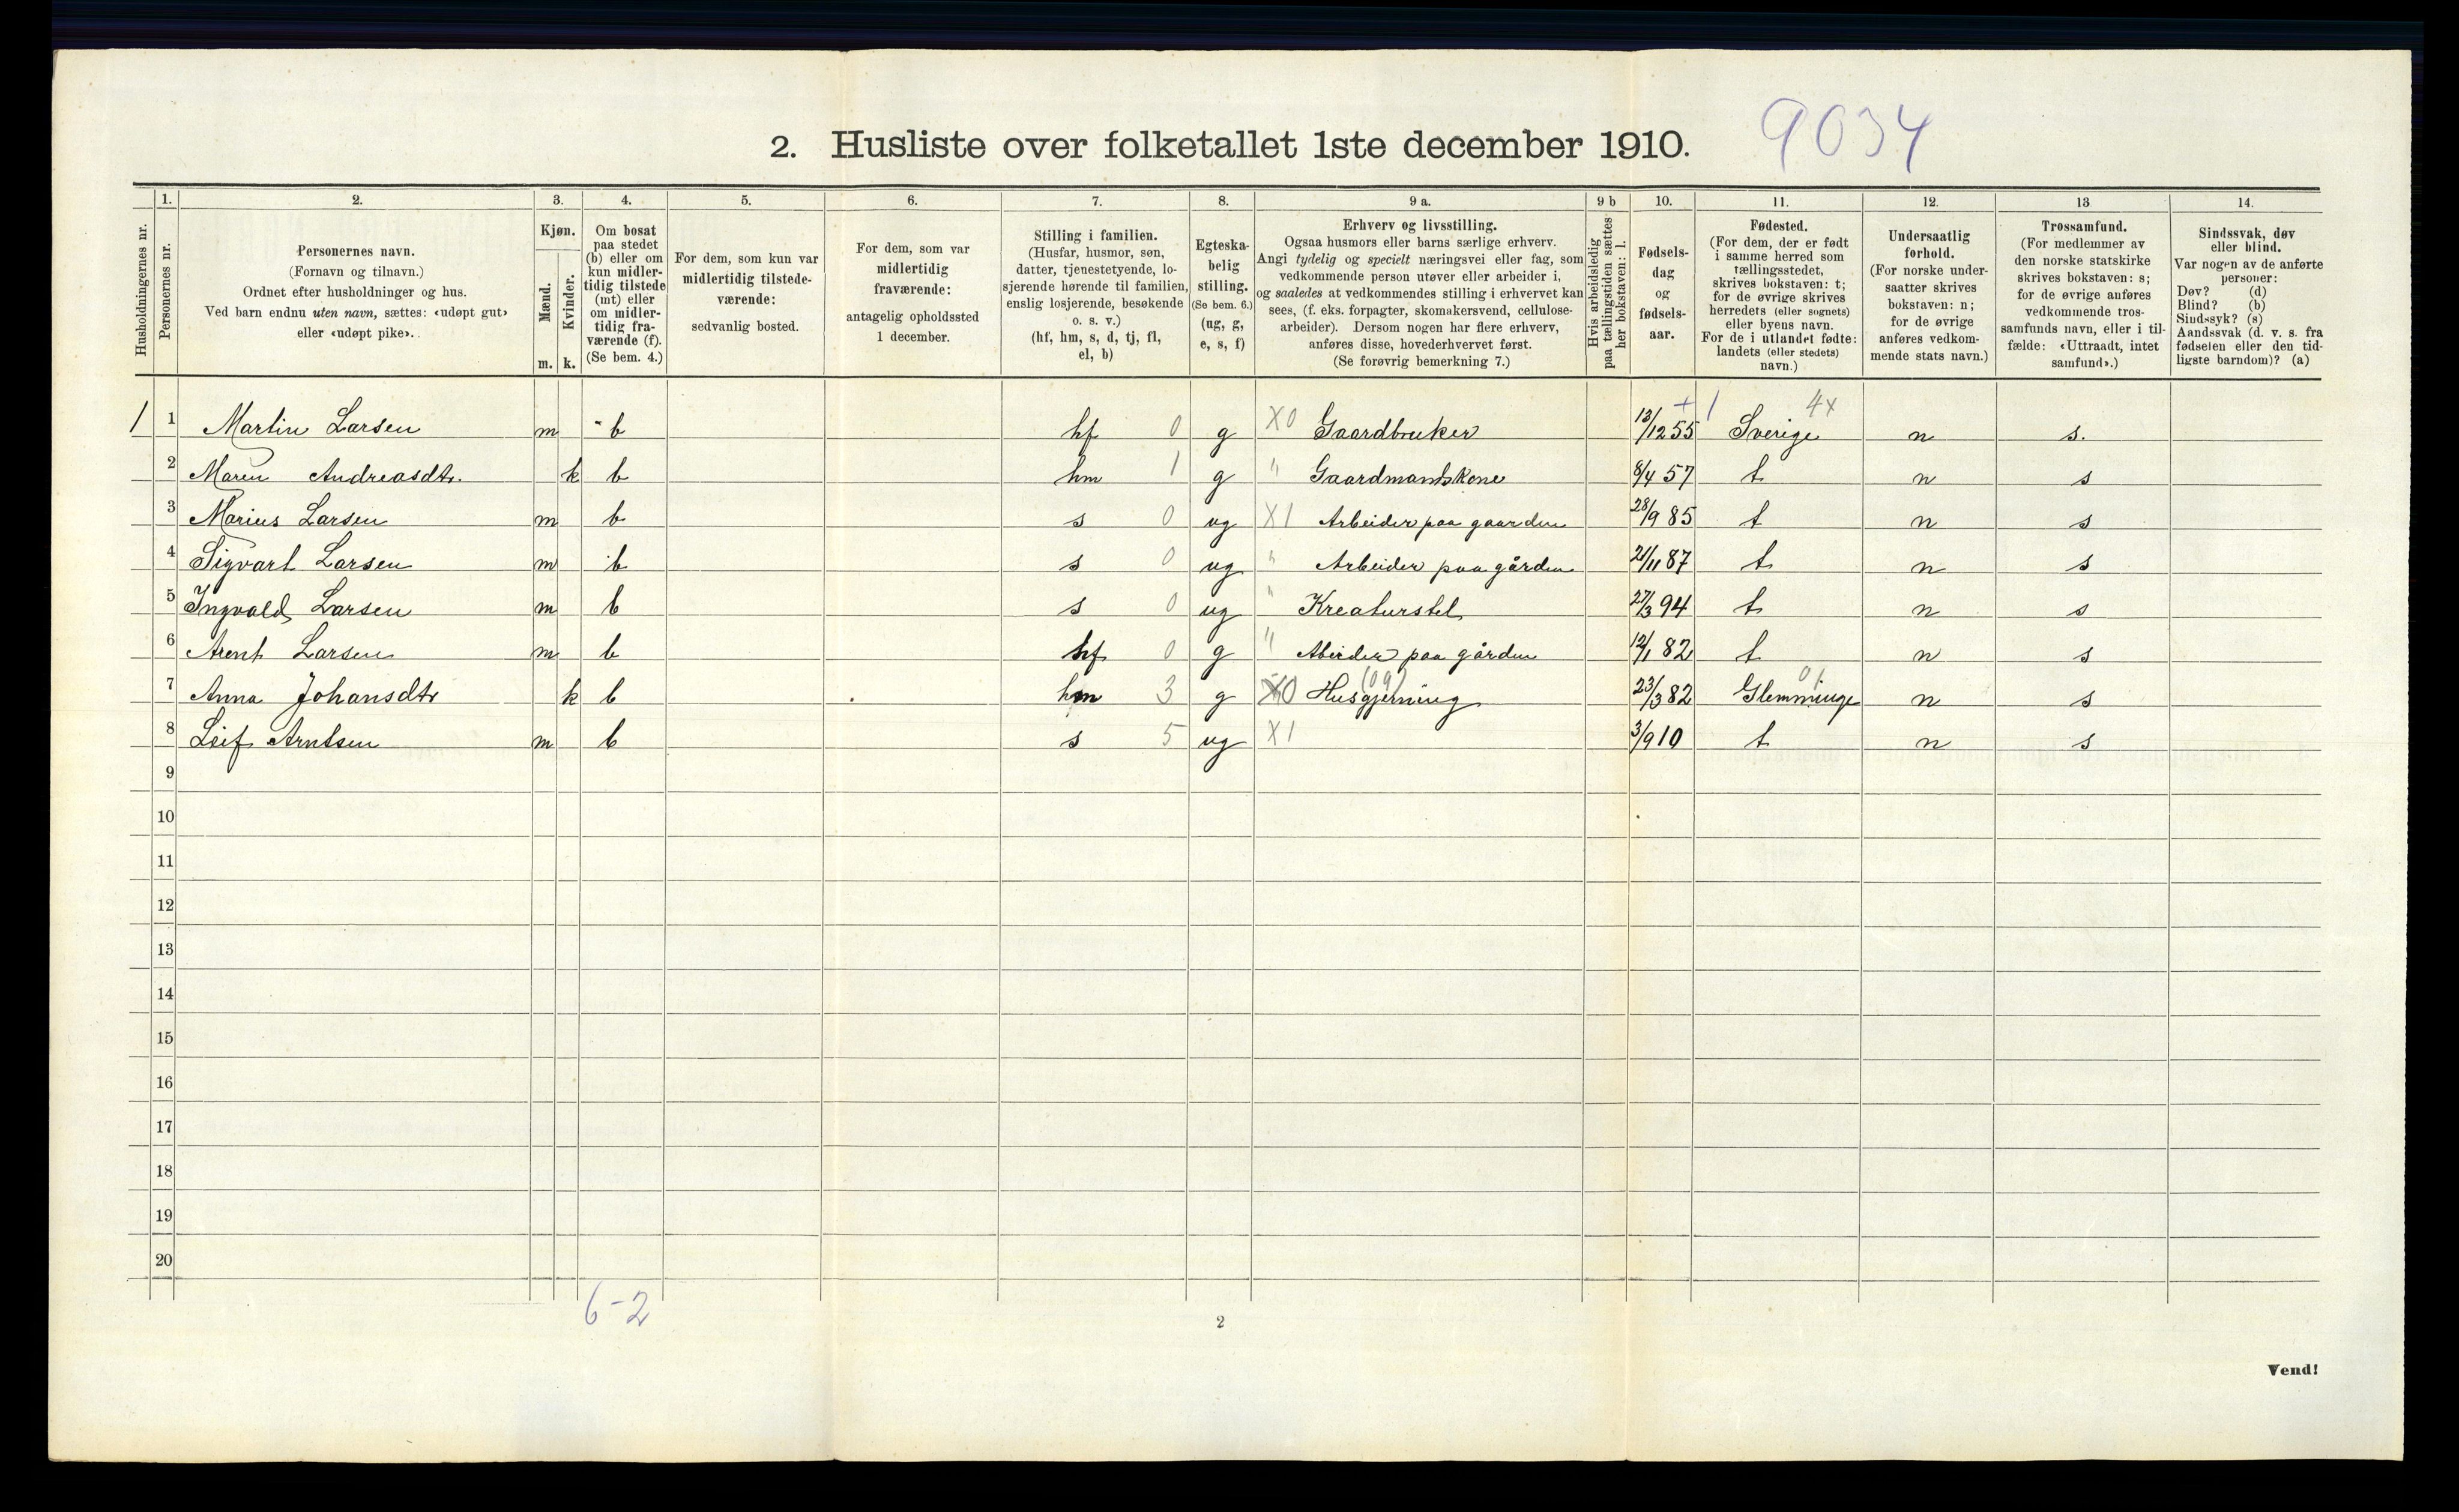 9034
2. Husliste over folketallet 1ste december 1910.
Husholdningernes nr.
1.
Personernes nr.
2.
Personernes navn.
(Fornavn og tilnavn.)
Ordnet efter husholdninger og hus.
Ved barn endnu uten navn, sættes: «udøpt gut»
eller «udøpt pike».
3.
Kjøn.
Mænd.
Kvinder.
m. k.
4.
Om bosat
paa stedet
(b) eller om
kun midler-
tidig tilstede
(mt) eller
om midler-
tidig fra-
værende (f).
(Se bem. 4.)
5.
For dem, som kun var
midlertidig tilstede-
værende:
sedvanlig bosted.
6.
For dem, som var
midlertidig
fraværende:
antagelig opholdssted
1 december.
7.
Stilling i familien.
(Husfar, husmor, søn,
datter, tjenestetyende, lo-
sjerende hørende til familien,
enslig losjerende, besøkende
o. s. v.)
(hf, hm, s, d, tj, fl,
el, b)
8.
Egteska-
belig
stilling.
(Se bem. 6.)
(ug, g,
e, s, f)
9 a.
Erhverv og livsstilling.
Ogsaa husmors eller barns særlige erhverv.
Angi tydelig og specielt næringsvei eller fag, som
vedkommende person utøver eller arbeider i,
og saaledes at vedkommendes stilling i erhvervet kan
sees, (f. eks. forpagter, skomakersvend, cellulose-
arbeider). Dersom nogen har flere erhverv,
anføres disse, hovederhvervet først.
(Se forøvrig bemerkning 7.)
9 b
Hvis arbeidsledig
paa tællingstiden sættes
her bokstaven: l.
10.
Fødsels-
dag
og
fødsels-
aar.
11.
Fødested.
(For dem, der er født
i samme herred som
tællingsstedet,
skrives bokstaven: t;
for de øvrige skrives
herredets (eller sognets)
eller byens navn.
For de i utlandet fødte:
landets (eller stedets)
navn.)
12.
Undersaatlig
forhold.
(For norske under-
saatter skrives
bokstaven: n;
for de øvrige
anføres vedkom-
mende stats navn.)
13
Trossamfund.
(For medlemmer av
den norske statskirke
skrives bokstaven: s;
for de øvrige anføres
vedkommende tros-
samfunds navn, eller i til-
fælde: «Uttraadt, intet
samfund».)
14.
Sindssvak, døv
eller blind.
Var nogen av de anførte
personer:
Døv? (d)
Blind? (b)
Sindssyk? (s)
Aandssvak (d. v. s. fra
fødselen eller den tid-
ligste barndom)? (a)
+ 1 4x
1 1 Martin Larsen m b hf 0 g X0 Gaardbruker 13/12 55 Sverige n s.
2 Maren Andreasdtr. k b hm 1 g " Gaardmandskone 8/4 57 t n s
3 Marius Larsen m b s 0 ug X1 Arbeider paa gaarden 28/9 85 t n s
4 Sigvart Larsen m b s 0 ug " Arbeider paa gården 21/11 87 t n s
5 Ingvald Larsen m b s 0 ug " Kreaturstel 27/3 94 t n s
6 Arent Larsen m b hf 0 g " Abeider paa gården 12/1 82 t n s
(09) 01
7 Anna Johansdtr k b hm 3 g X0 Husgjerning 23/3 82 Glemminge n s
8 Leif Arntsen m b s 5 ug X1 3/9 10 t n s
9
10
11
12
13
14
15
16
17
18
19
20
6-2
2
Vend!